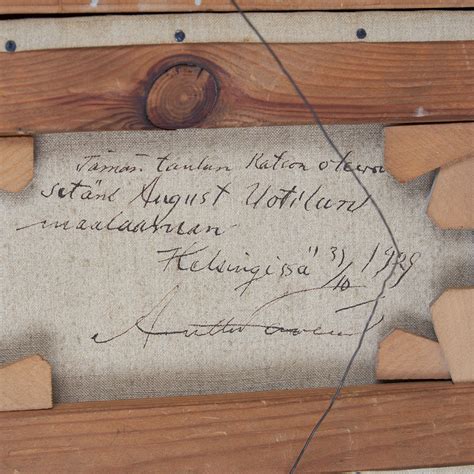 Tämän taulun katson olevan
setäni August Uotilan
maalaaman
Helsingissä 31/10 1929